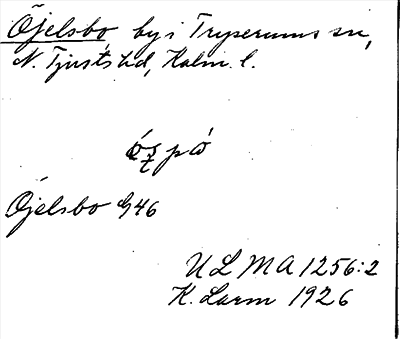 Öjelsbo by i Tryserums sn,
N. Tjusts hd, Kalm. l.
på
Öjelsbo G46
ULMA 1256:2
K. Larm 1926